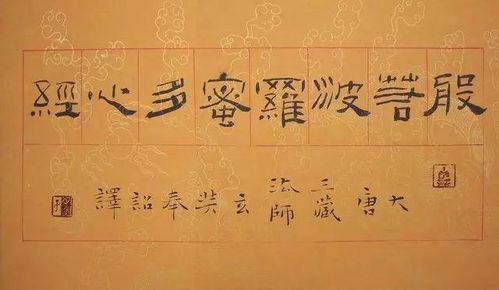 般若波羅蜜多心經
大唐三藏法師玄奘奉詔譯